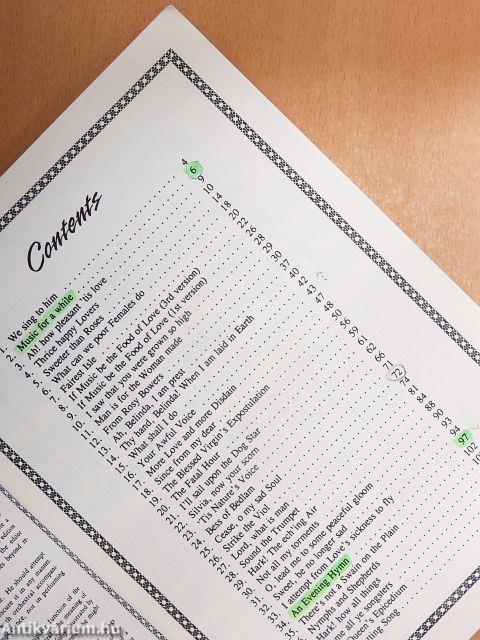 Contents
We sing to him 4
2. Music for a while 6
3. Ah! how pleasant 'tis love 9
4. Thrice happy Lovers 10
5. Sweeter than Roses 14
6. What can we poor Females do 18
7. Fairest Isle 20
8. If Music be the Food of Love (3rd version) 22
9. If Music be the Food of Love (1st version) 26
10. I saw that you were grown so high 28
11. Man is for the Woman made 29
12. From Rosy Bowers 30
13. Ah, Belinda, I am prest 37
14. Thy hand, Belinda! When I am laid in Earth 40
15. What shall I do 42
16. Your Awful Voice 43
17. More Love and more Disdain 47
18. Since from my dear 48
19. The Blessed Virgin's Expostulation 50
20. The Fatal Hour 56
21. I'll sail upon the Dog Star 59
22. Silvia, now your scorn 61
23. 'Tis Nature's Voice 62
24. Bess of Bedlam 66
25. Cease, O my sad Soul 71
26. Strike the Viol 72
27. Lord, what is man 74
28. Sound the Trumpet 81
29. Hark! The ech'ing Air 84
30. Not all my torments 88
31. O lead me to some peaceful gloom 90
32. Sweet, be no longer sad 93
33. I attempt from Love's sickness to fly 94
34. An Evening Hymn 97
35. There's not a Swain on the Plain 102
Nymphs and Shepherds
Hark, how all things
ye songsters
Epicedium
Song
Antikvarium.hu